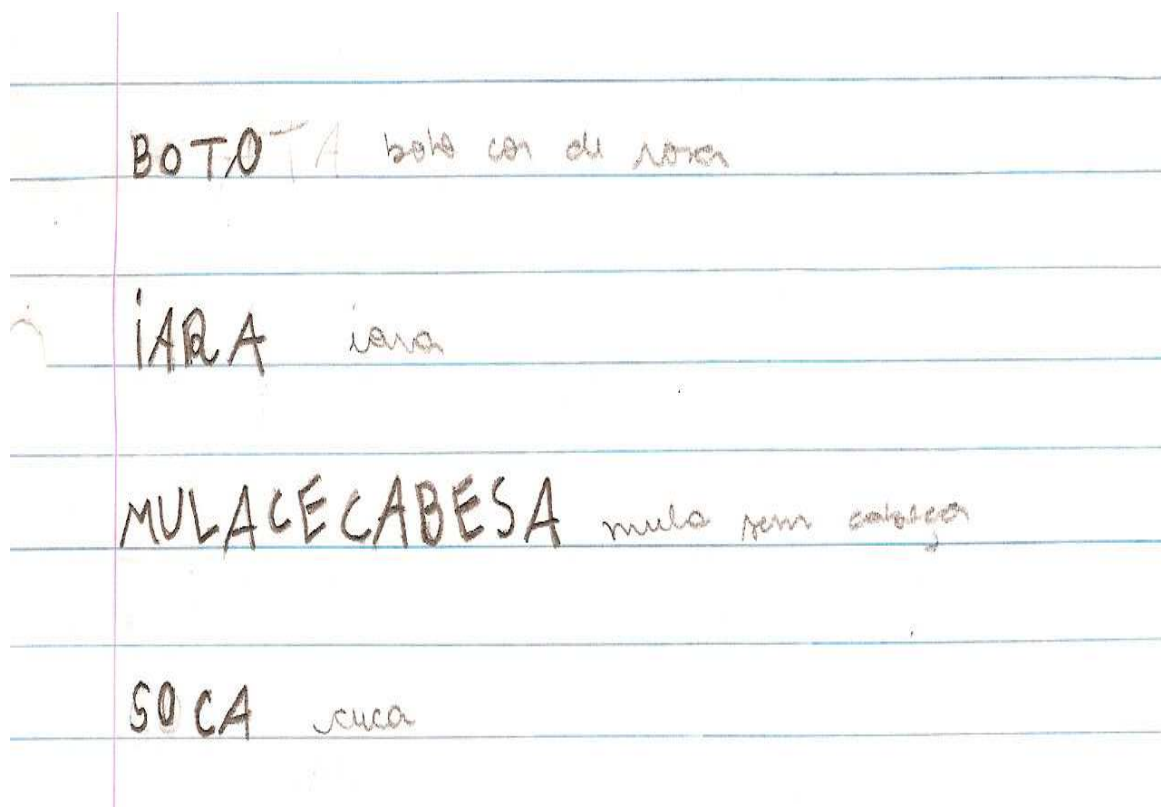 BOTO boto cor de rosa
IARA iara
MULACECABESA mula sem cabeça
SOCA cuca